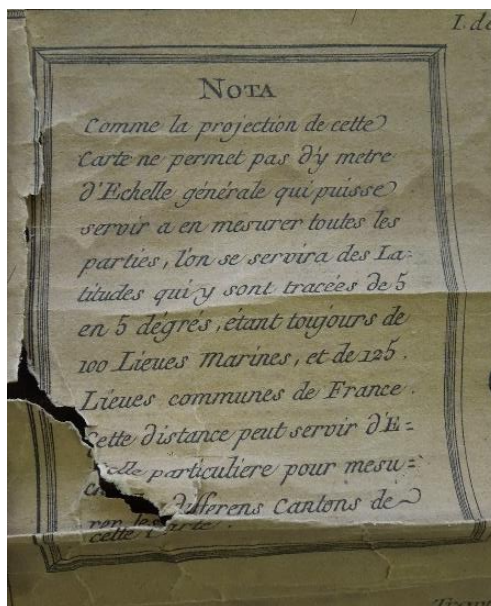 I. de
NOTA
Comme la projection de cette
Carte ne permet pas d'y metre
d'Echelle générale qui puisse
servir a en mesurer toutes les
parties, l'on se servira des La=
titudes qui y sont tracées de 5
en 5 dégrés, étant toujours de
100 Lieues Marines, et de 125.
Lieues communes de France.
Cette distance peut servir d'E=
particuliere pour mesu=
differens Cantons de
rer les
cette Carte.